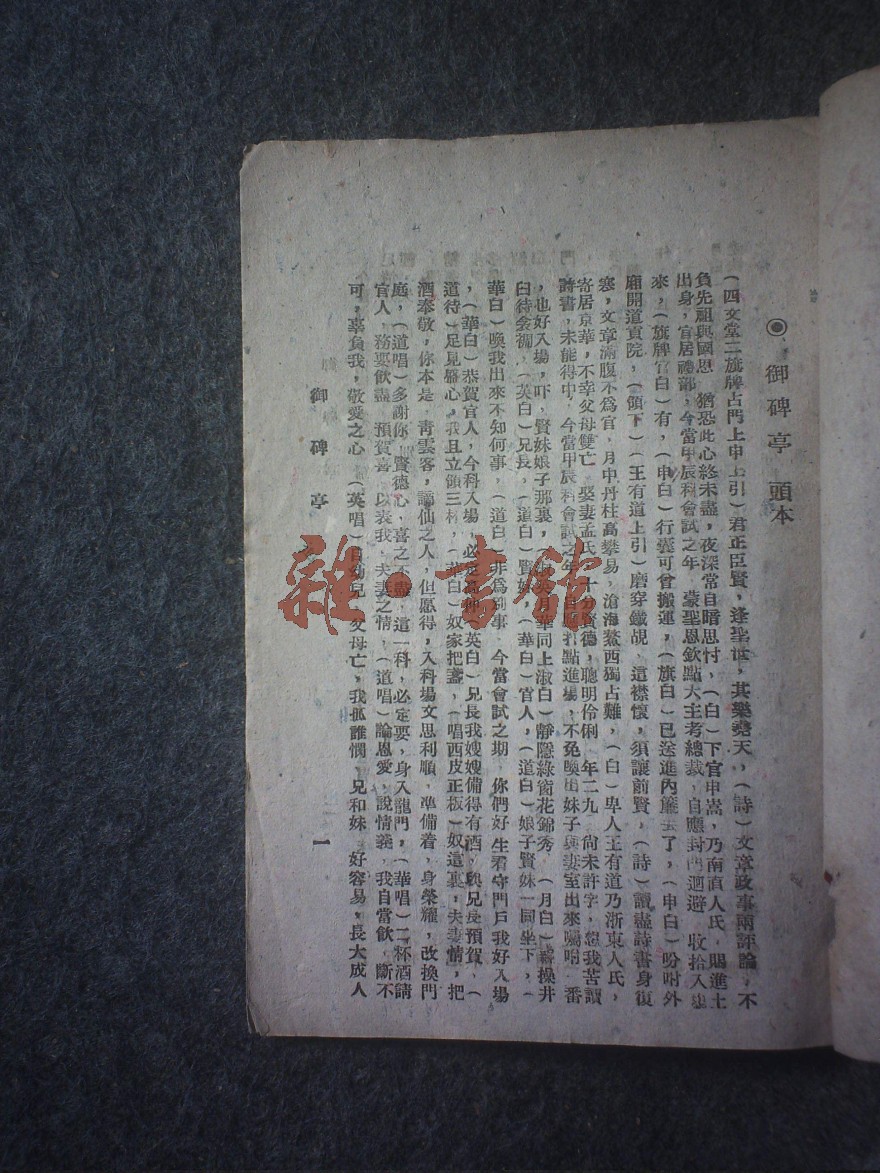 ◉御碑亭 頭本
(四文堂二旗牌占門上申上引)君正臣賢,逢聖世,其樂堯天,(詩)文章政事兩評論,不
負先祖與國恩,猶恐此心終未盡,夜深常自暗思忖,(白)下官申嵩,乃南直人氏,賜進士
出身,官居禮部,今當甲辰科會試之年,蒙聖恩欽點大主考總裁,自應封門迴避,收拾入
來,(旗牌官白)有,(申白)行囊可曾搬運,(旗白)已送進內簾去了,(申白)吩咐外
廂開道貢院,(領下)(王有道上引)磨穿鐵硯,這襟懷,須讓前賢,(詩)讀盡詩書身復
寒,文章滿腹不爲官,月中丹桂高攀易,滄海鰲西獨占難,(白)卑人王有道乃浙東人氏,
寄居京華,不幸父母雙亡,娶妻孟氏,十分賢德,聰明伶俐,年二九,尚未許字,想我苦讀
詩書,未能得中,今當甲辰科會試之年,自應打點進場,不免喚出妹子與妻室出來囑咐一番
,也好入場,吓,賢妹娘子那裏,月華同上淑白)靜隱綠窗花錦秀,(月白)操井
臼待衾裯,(英白)兄長,(道白)賢妹,(華白)官人,(道白)娘子賢妹一同坐下,(
華白)喚我出來不知何事,(道白)非爲別事,今當會試之期,你們好生看守門戶我好入場
,(華白)恭賀官人,今科入場,必定高中(英白)兄長我嫂嫂備得有酒,與兄長預賀,(
道待)足見盛心,我且立領三杯,(華白)奴家把盞,(唱西皮正板)奴這裏,夫妻情,把
酒奉敬,你本是,青雲客,謫仙之人,但愿得,入科場文思利順,準備着,身榮耀,改換門
庭,(道唱)多謝你,賢德心,喜之不盡,這一科,必定要,身入龍門,(華唱)二杯酒請
官人,務要飲盡,預賀喜,以表我,夫妻之情,(道唱)論恩愛,說情義,我自當飲,斷不
可,辜負我,敬愛之心,(英唱)自幼兒,父母亡,我孤誰憫,兄和妹,好容易,長大成人
御碑亭 一
雜·書館